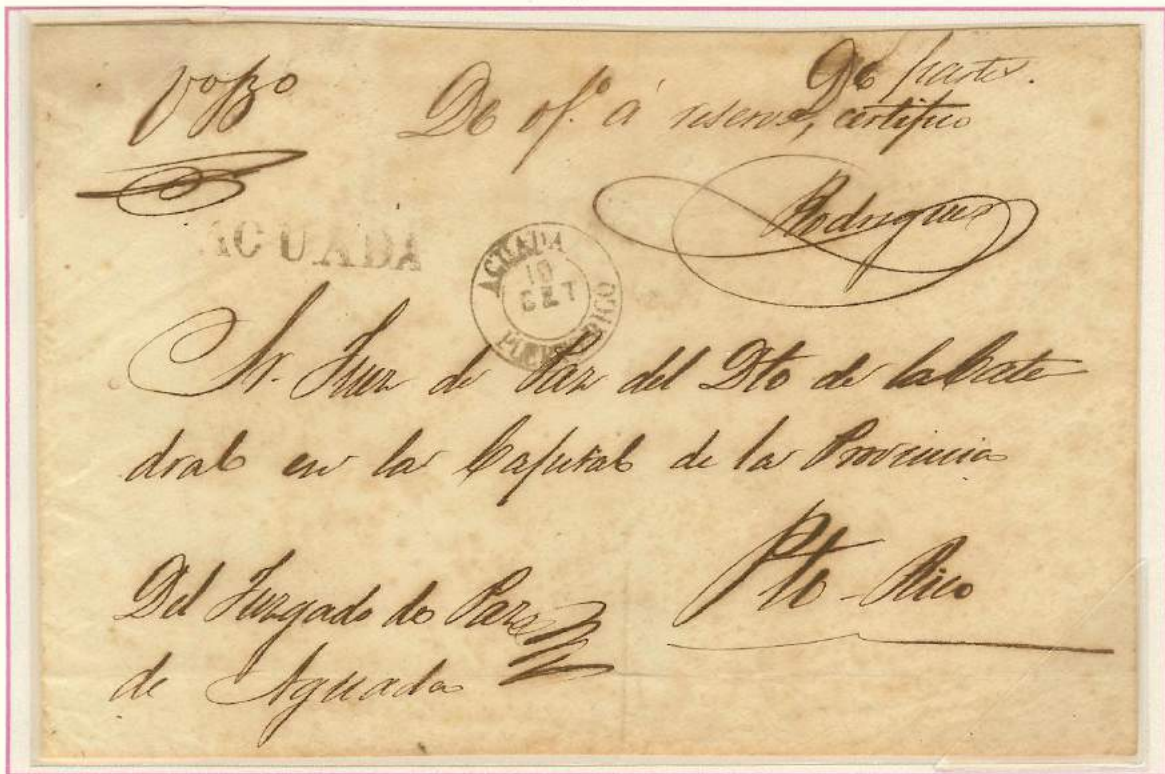 De partes.
De of.º á reserva, certifico
Rodriguez
AGUADA
AGUADA
10
SET
PUERTO RICO
Sr. Juez de Paz del Dto de la Cate
dral en la Capital de la Provincia
Pto-Rico
Del Juzgado de Paz
de Aguada